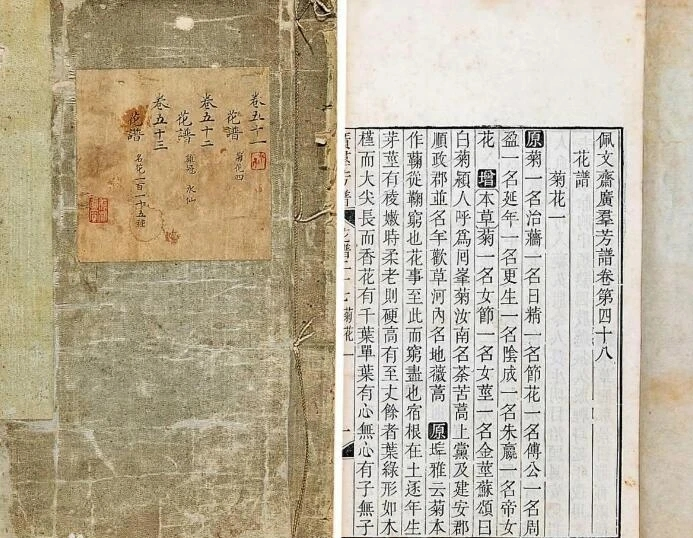 卷五十一
花譜 菊花四
卷五十二
花譜 雞冠 水仙
卷五十三
花譜 名花一百一十五種
佩文齋廣羣芳譜卷第四十八
花譜
菊花一
原菊一名治蘠一名日精一名節花一名傅公一名周
盈一名延年一名更生一名陰成一名朱嬴一名帝女
花 增本草菊一名女節一名女莖一名金莖蘇頌曰
白菊潁人呼爲囘峯菊汝南名荼苦蒿上黨及建安郡
順政郡並名年歡草河內名地薇蒿 原埤雅云菊本
作蘜從鞠窮也花事至此而窮盡也宿根在土逐年生
芽莖有棱嫩時柔老則硬高有至丈餘者葉綠形如木
槿而大尖長而香花有千葉單葉有心無心有子無子